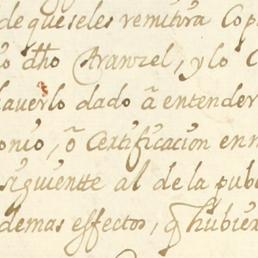 de que seles remitira Cop
o dho Aranzel, y lo C
hauerlo dado â entender
onio, ô Certificacion enn
siguientte al de la pub
demas effectos, q hubier